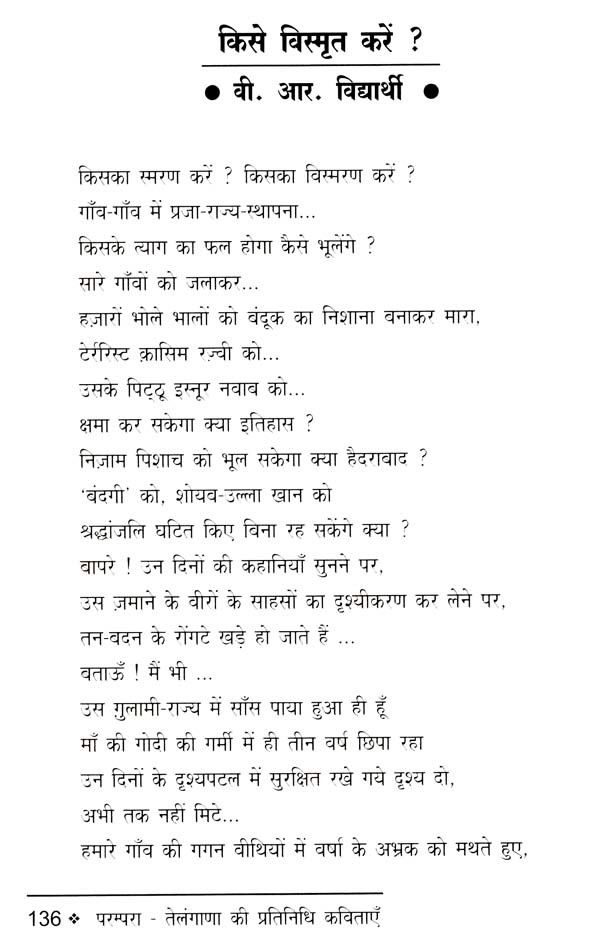 किसे विस्मृत करें ?
● वी. आर. विद्यार्थी ●
किसका स्मरण करें ? किसका विस्मरण करें ?
गाँव-गाँव में प्रजा-राज्य-स्थापना...
किसके त्याग का फल होगा कैसे भूलेंगे ?
सारे गाँवों को जलाकर...
हज़ारों भोले भालों को बंदूक का निशाना बनाकर मारा,
टेर्ररिस्ट क़ासिम रज़्वी को...
उसके पिट्ठू इस्नूर नवाब को...
क्षमा कर सकेगा क्या इतिहास ?
निज़ाम पिशाच को भूल सकेगा क्या हैदराबाद ?
'बंदगी' को, शोयब-उल्ला खान को
श्रद्धांजलि घटित किए बिना रह सकेंगे क्या ?
बापरे ! उन दिनों की कहानियाँ सुनने पर,
उस ज़माने के वीरों के साहसों का दृश्यीकरण कर लेने पर,
तन-बदन के रोंगटे खड़े हो जाते हैं ...
बताऊँ ! मैं भी ...
उस ग़ुलामी-राज्य में साँस पाया हुआ ही हूँ
माँ की गोदी की गर्मी में ही तीन वर्ष छिपा रहा
उन दिनों के दृश्यपटल में सुरक्षित रखे गये दृश्य दो,
अभी तक नहीं मिटे...
हमारे गाँव की गगन वीथियों में वर्षा के अभ्रक को मथते हुए,
136 ❖ परम्परा - तेलंगाणा की प्रतिनिधि कविताएँ